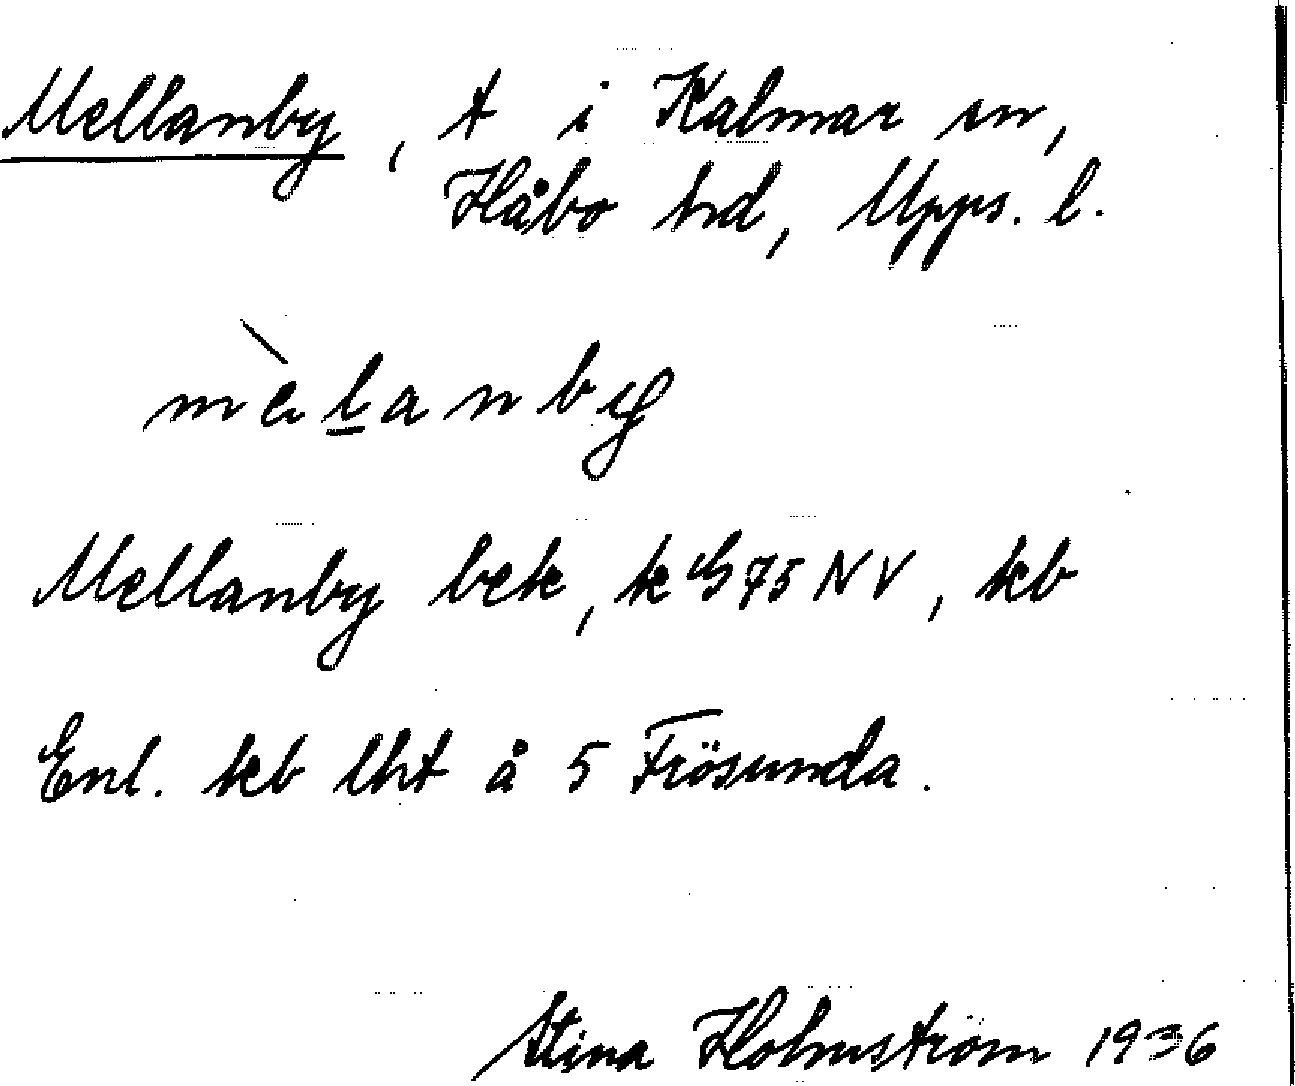 Mellanby, t i Kalmar sn,
Håbo hd, Upps. l.
mèlanby
Mellanby bek, k G 75 NV, kb
Enl. kb lht å 5 Frösunda.
Stina Holmström 1936